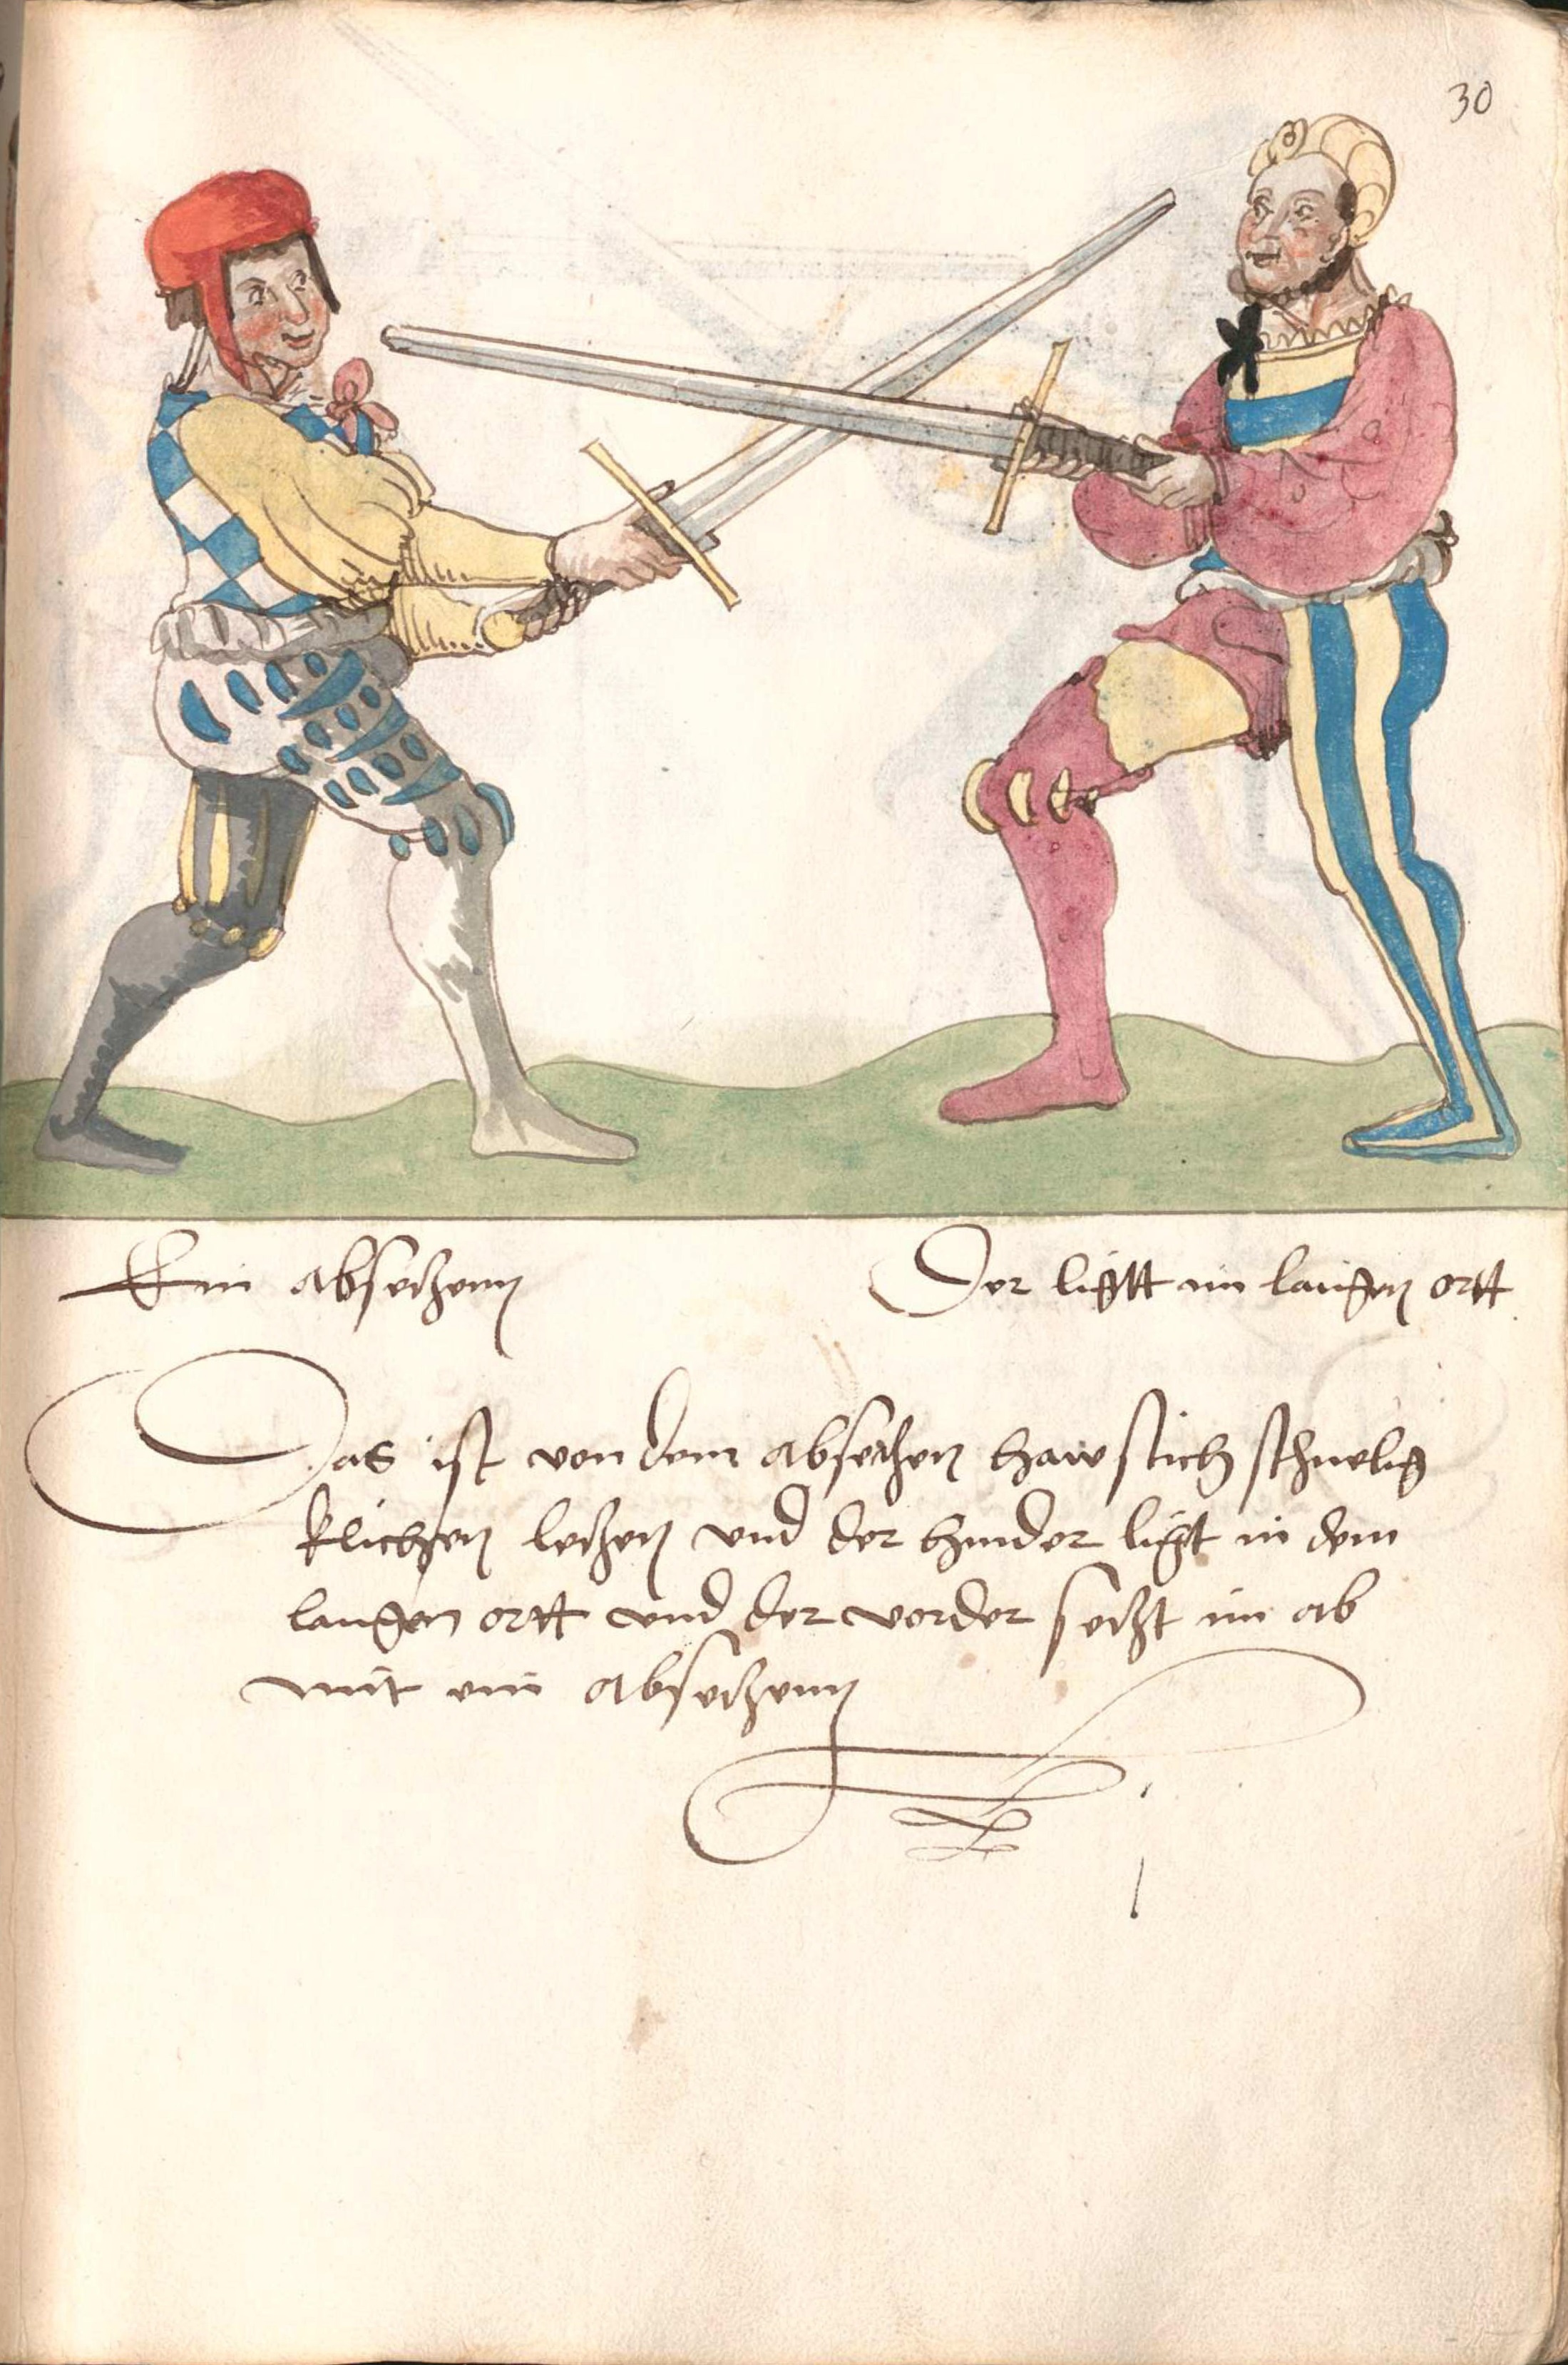 30
Ein abseczenn
Der ligtt im langen ortt
Das ist von dem abseczen haw stich schnelig
klichen leczen vnd der hinder ligt in dem
langen ortt vnd der vorder seczt im ab
mit ein abseczenn